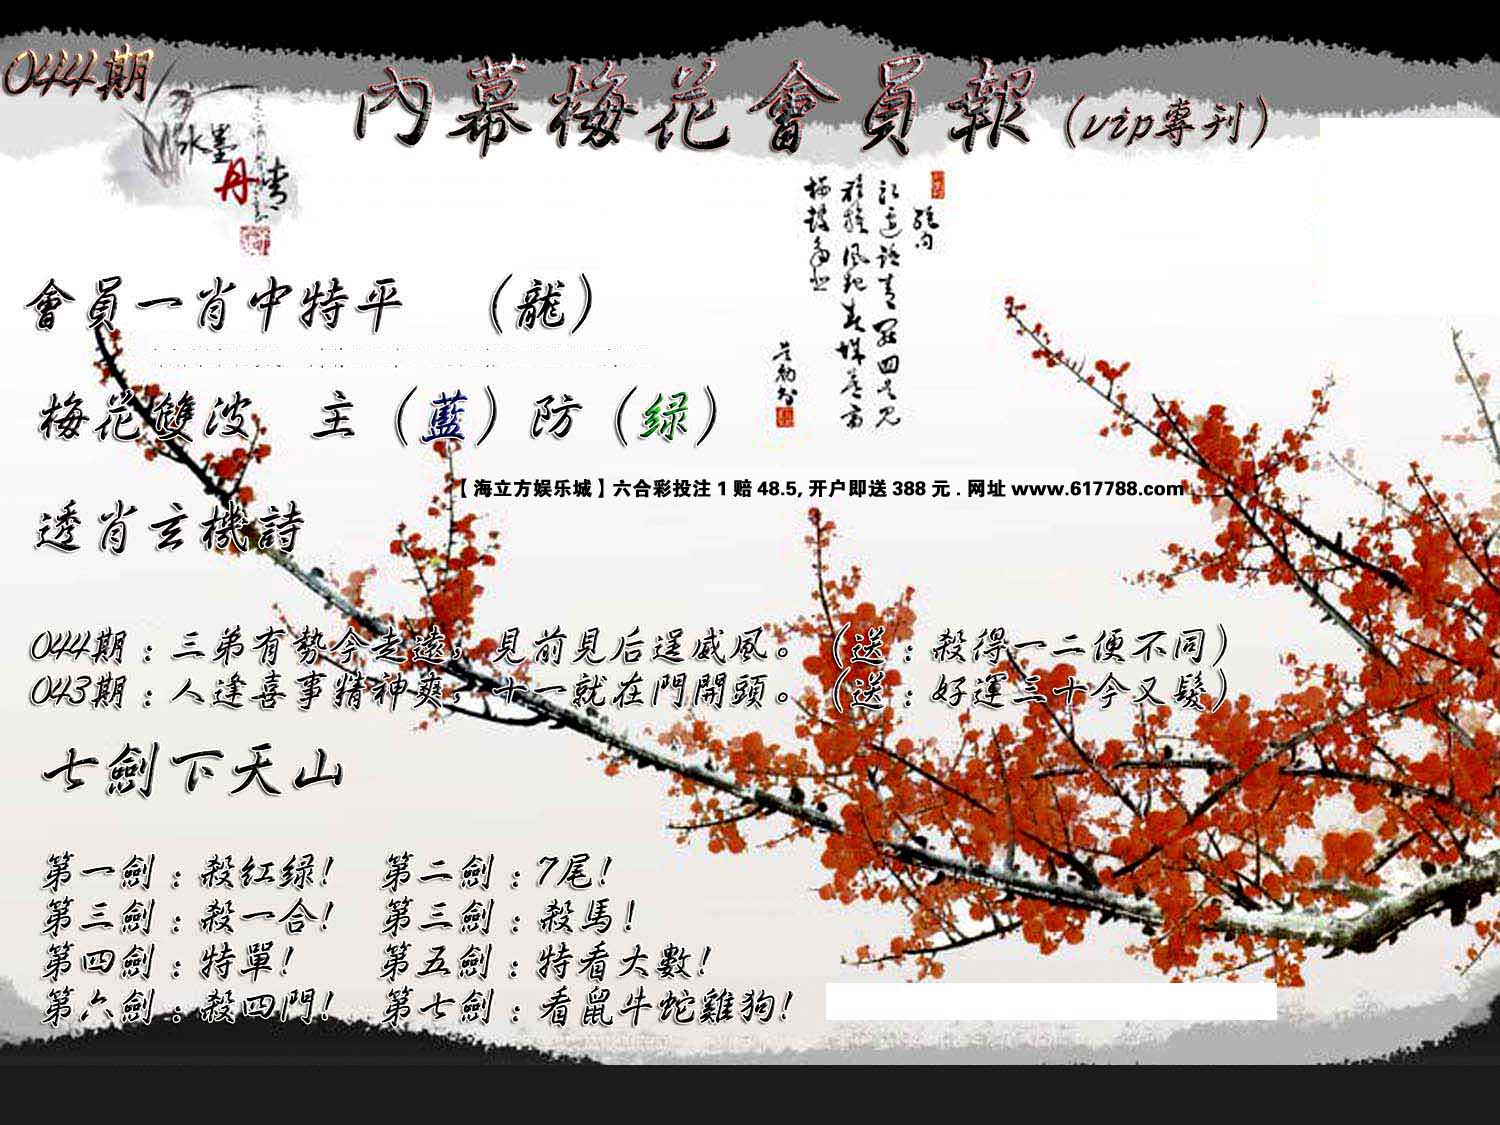 044期
內幕梅花會員報(vip專刊)
水墨
丹青
會員一肖中特平 (龍)
梅花雙波 主(藍)防(绿)
【海立方娱乐城】六合彩投注1赔48.5,开户即送388元.网址www.617788.com
透肖玄機詩
044期:三弟有勢今走遠,見前見后逞威風。(送:殺得一二便不同)
043期:人逢喜事精神爽,十一就在門開頭。(送:好運三十今又發)
七劍下天山
第一劍:殺红绿! 第二劍:7尾!
第三劍:殺一合! 第三劍:殺馬!
第四劍:特單! 第五劍:特看大數!
第六劍:殺四門! 第七劍:看鼠牛蛇雞狗!